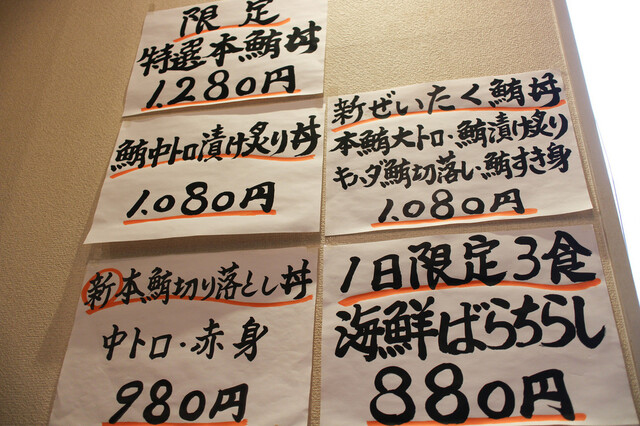 限定
特選本鮪丼
1.280円
鮪中トロ漬け炙り丼
1.080円
新本鮪切り落とし丼
中トロ・赤身
980円
新ぜいたく鮪丼
本鮪大トロ・鮪漬け炙り
キハダ鮪切落し・鮪すき身
1.080円
1日限定3食
海鮮ばらちらし
880円